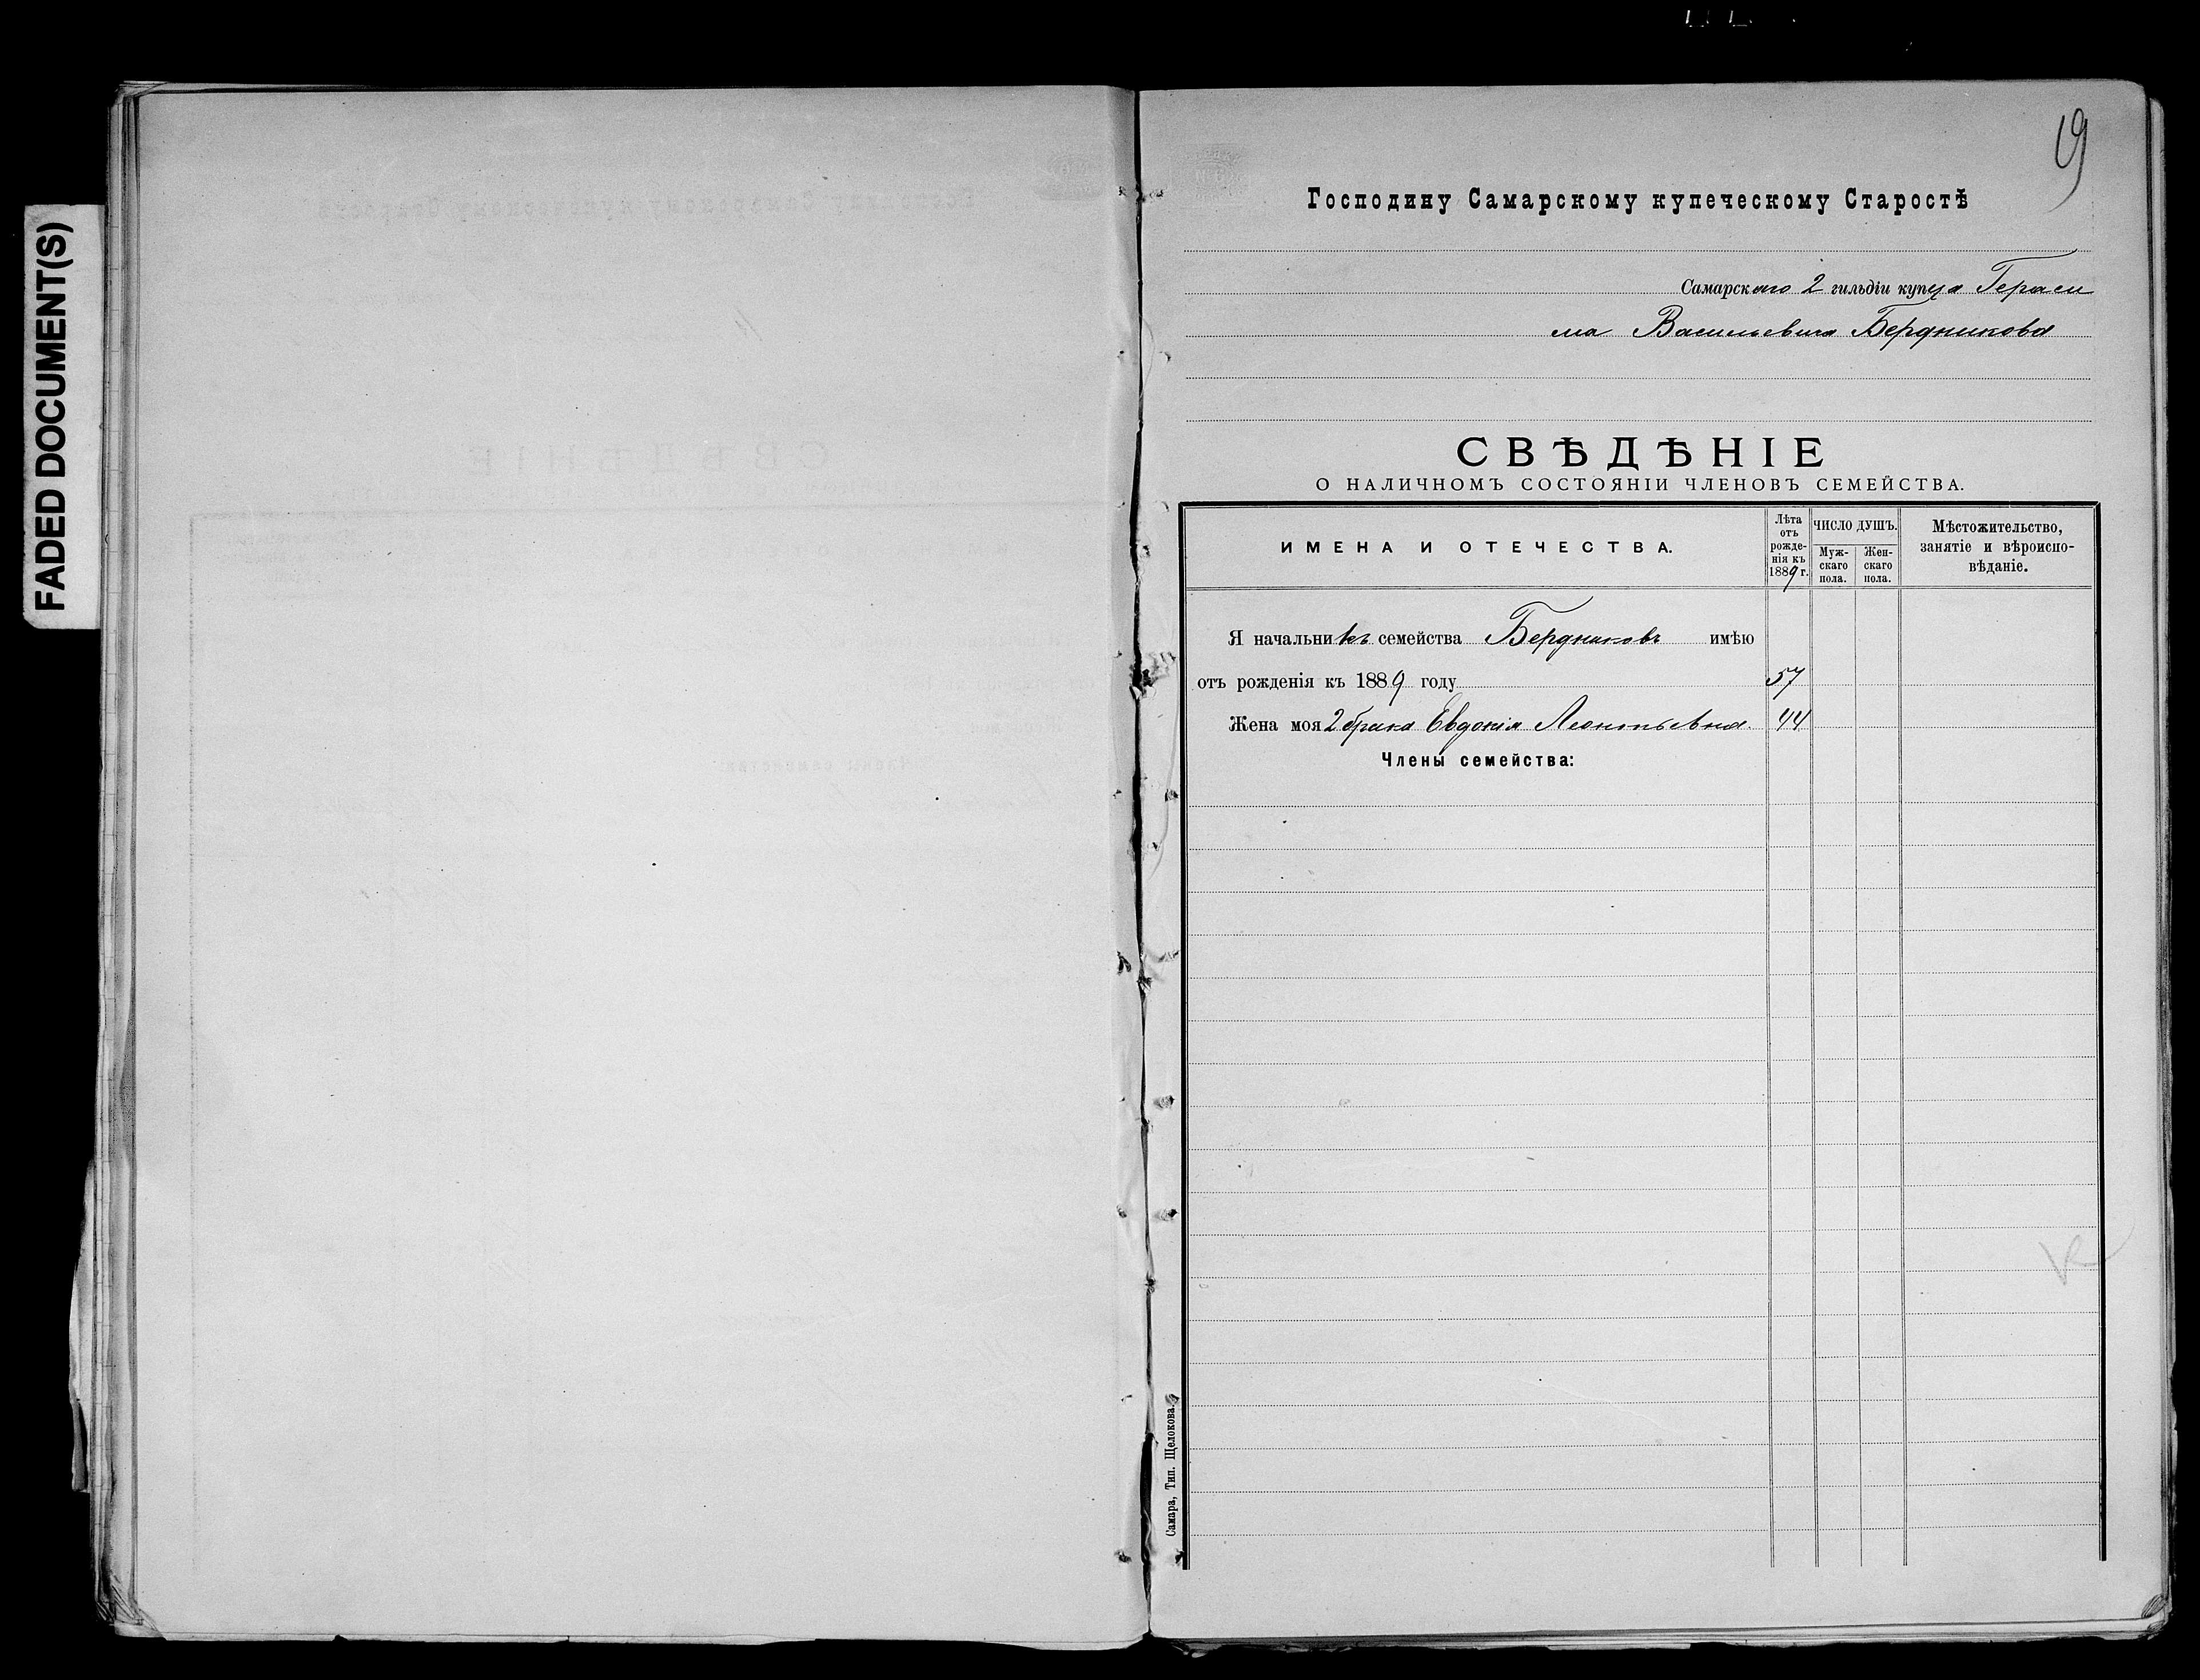 FADED DOCUMENT(S)
19
Господину Самарскому купеческому Старостѣ
Самарскаго 2 гильдіи купца Гераси
ма Васильевича Бердникова
СВѢДѢНІЕ
О НАЛИЧНОМЪ СОСТОЯНІИ ЧЛЕНОВЪ СЕМЕЙСТВА.
ИМЕНА И ОТЕЧЕСТВА.
Лѣта
отъ
рожде-
нія къ
1889 г.
ЧИСЛО ДУШЪ.
Муж-
скаго
пола.
Жен-
скаго
пола.
Мѣстожительство,
занятіе и вѣроиспо-
вѣданіе.
Я начальникъ семейства Бердниковъ имѣю
отъ рожденія къ 1889 году 57
Жена моя 2 брака Евдокія Леонтьевна. 44
Члены семейства:
Самара, Тип. Щелокова.